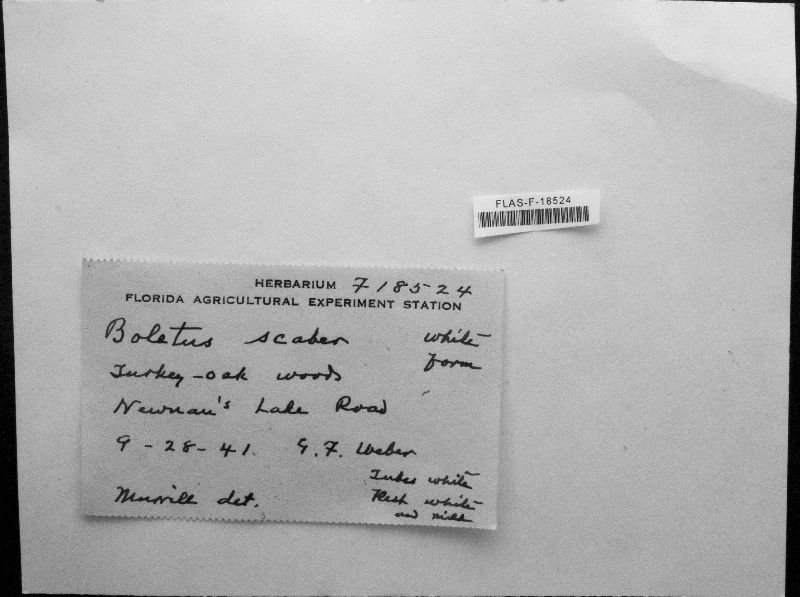 FLAS-F-18524
HERBARIUM F18524
FLORIDA AGRICULTURAL EXPERIMENT STATION
Boletus scaber white form
Turkey-oak woods
Newnan's Lake Road
9-28-41. G. F. Weber
Tubes white
Flesh white
and mild
Murrill det.